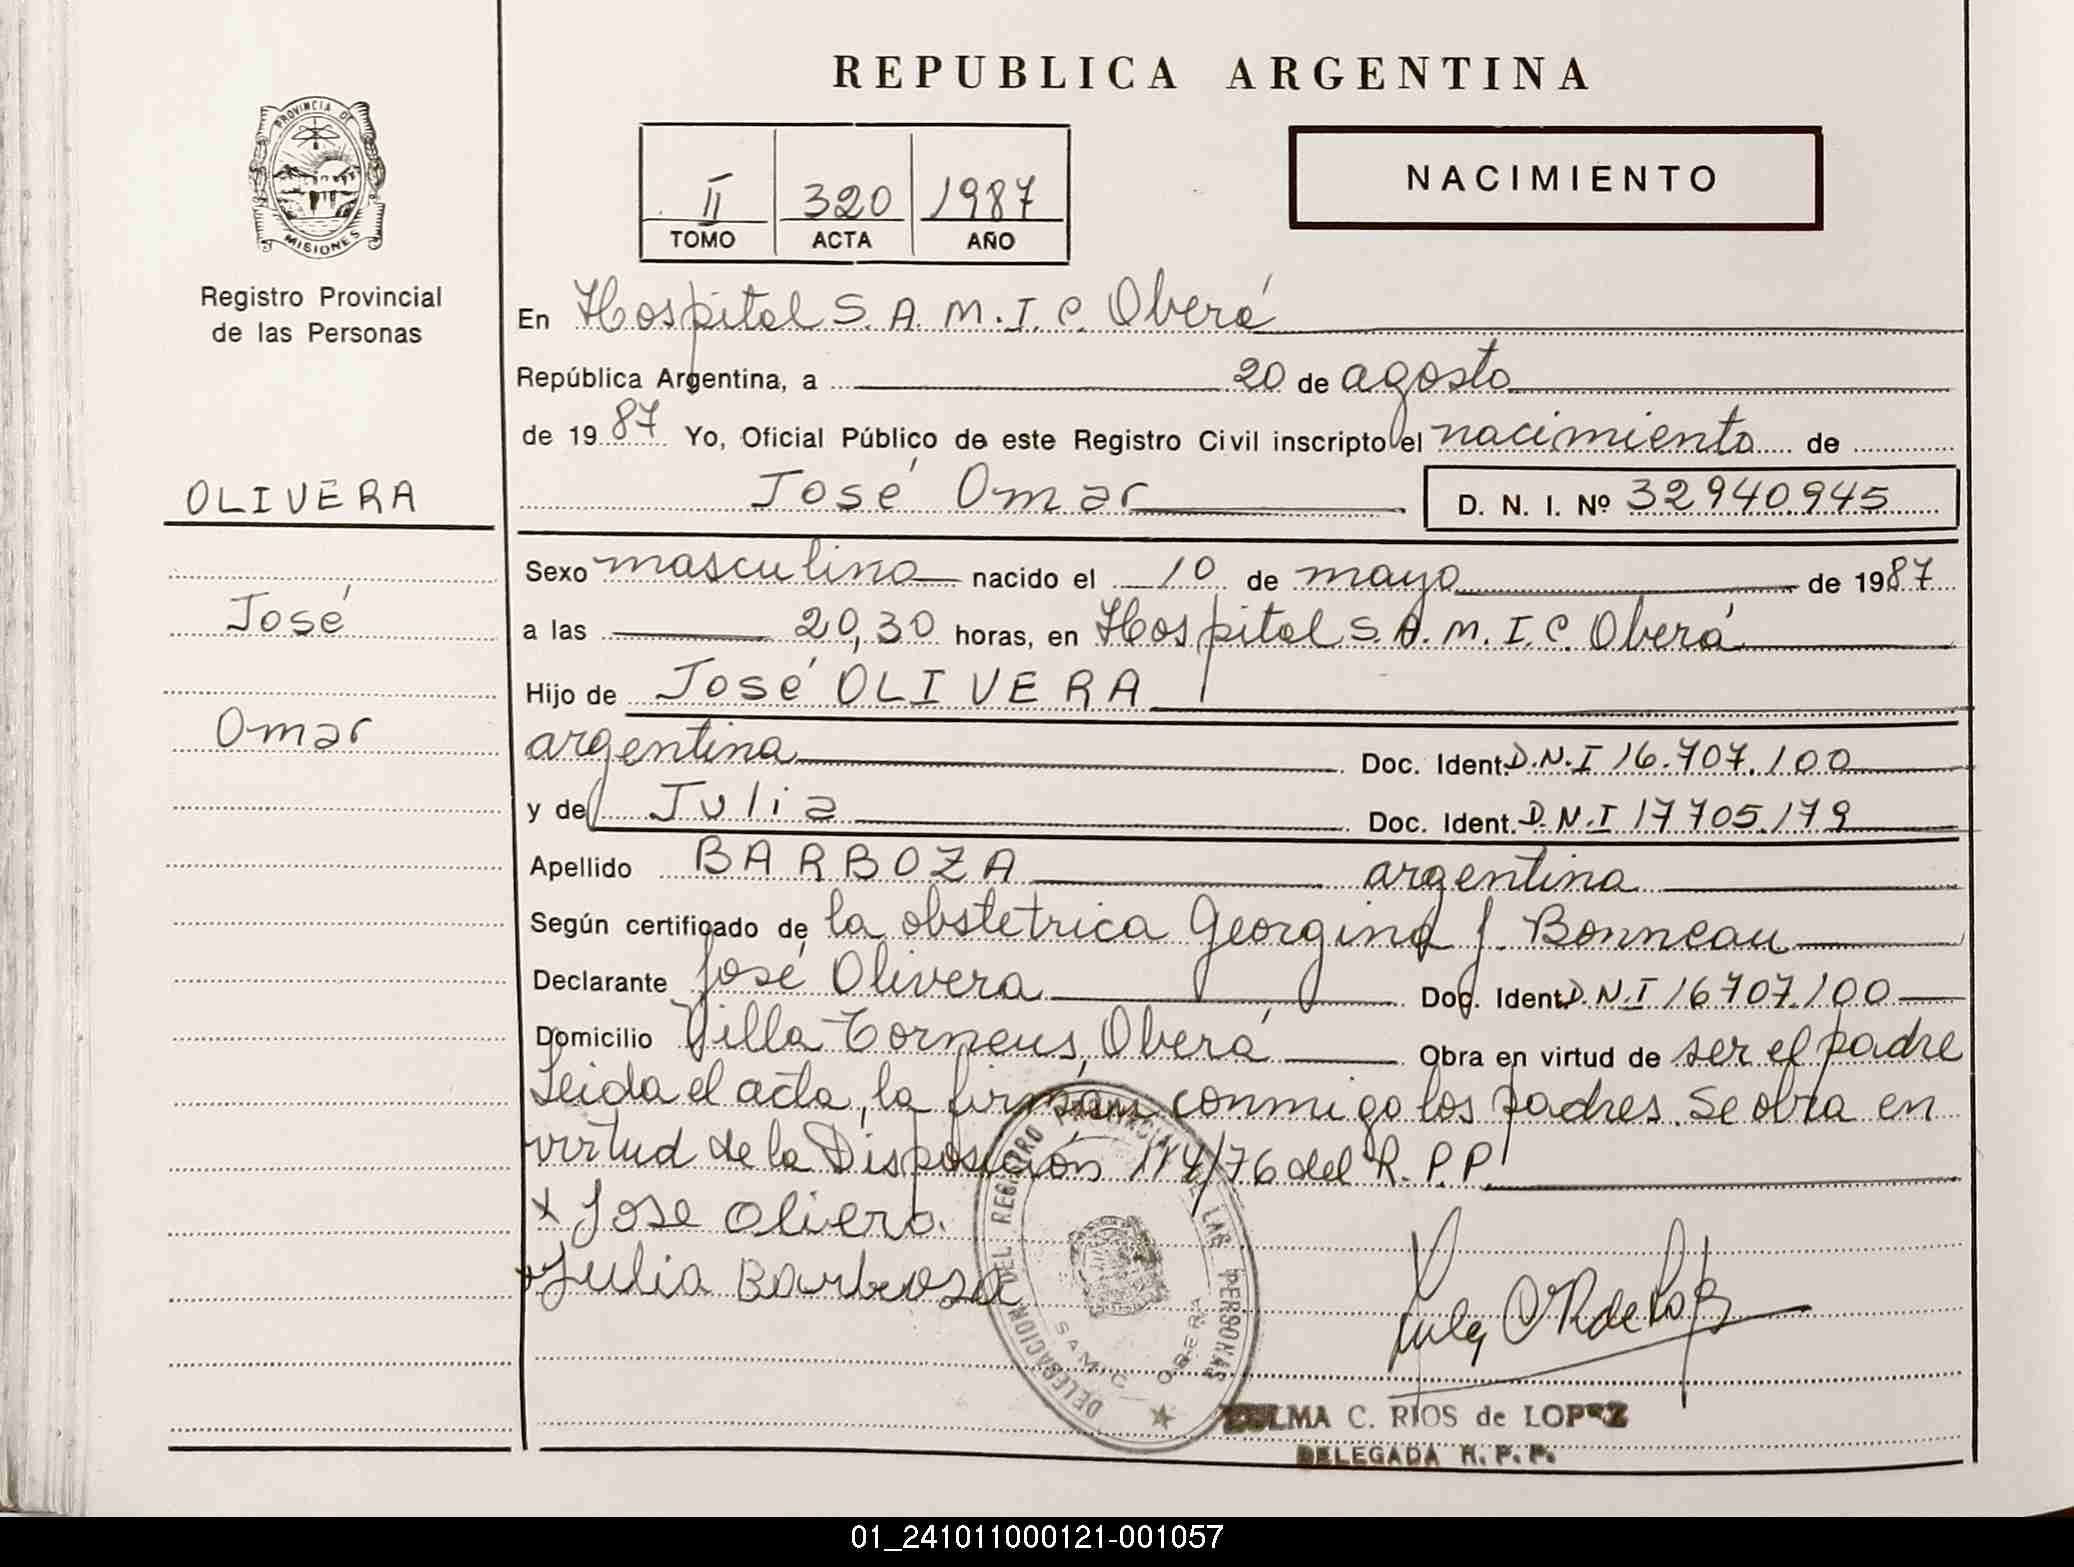 REPUBLICA ARGENTINA
PROVINCIA DE
MISIONES
Registro Provincial
de las Personas
II 320 1987
TOMO ACTA AÑO
NACIMIENTO
En Hospital S.A.M.I.C. Oberá
República Argentina, a 20 de agosto
de 1987 Yo, Oficial Público de este Registro Civil inscripto el nacimiento de
José Omar D. N. I. Nº 32940.945
OLIVERA
José
Omar
Sexo masculino nacido el 10 de mayo de 1987
a las 20,30 horas, en Hospital S.A.M.I.C. Oberá
Hijo de José OLIVERA
argentina Doc. Ident. D.N.I 16.707.100
y de Julia Doc. Ident. D.N.I 17705.179
Apellido BARBOZA argentina
Según certificado de la obstetrica Georgina J. Bonneau
Declarante José Olivera Doc. Ident. D.N.I 16707.100
Domicilio Villa Torneus, Oberá Obra en virtud de ser el padre
Leida el acta, la firman conmigo los padres. Se obra en
virtud de la Disposición 114/76 del R.P.P.
x Jose oliera.
x Julia Barboza
DELEGACION DEL REGISTRO PROVINCIAL DE LAS PERSONAS
S.A.M.I.C. OBERA
ZULMA C. RIOS de LOPEZ
DELEGADA R. P. P.
01_241011000121-001057